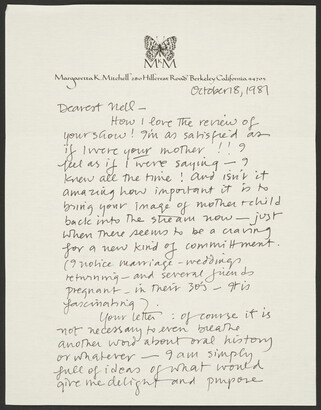 M M
Margaretta K. Mitchell 280 Hillcrest Road Berkeley California 94705
October 18, 1987
Dearest Nell –
How I love the review of
your show! I'm as satisfied as
if I were your mother !! I
feel as if I were saying – I
knew all the time! And isn't it
amazing how important it is to
bring your image of mother + child
back into the stream now – just
when there seems to be a craving
for a new kind of committment.
(I notice marriage – weddings
returning – and several friends
pregnant – in their 30s – It is
fascinating).
Your letter : of course it is
not necessary to even breathe
another word about oral history
or whatever – I am simply
full of ideas of what would
give me delight and purpose